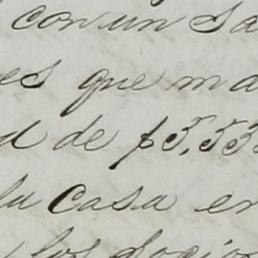 con un sa
es que ma
d de $5,533
la casa en
los socios